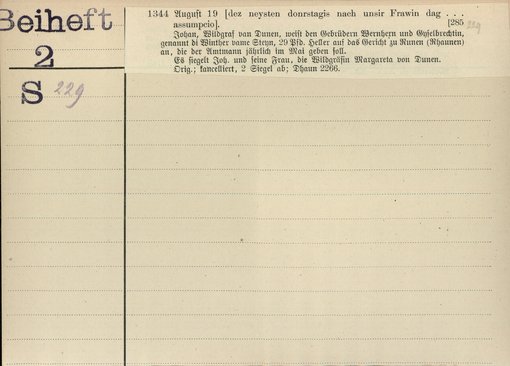 Beiheft
2
S 229
1344 August 19 [dez neysten donrstagis nach unsir Frawin dag . .
assumpcio]. [285 229
Johan, Wildgraf van Dunen, weist den Gebrüdern Wernhern und Gyselbrechtin,
genannt di Winther vame Steyn, 29 Pfd. Heller auf das Gericht zu Runen (Rhaunen)
an, die der Amtmann jährlich im Mai geben soll.
Es siegelt Joh. und seine Frau, die Wildgräfin Margareta von Dunen.
Orig.; kancelliert, 2 Siegel ab; Dhaun 2266.